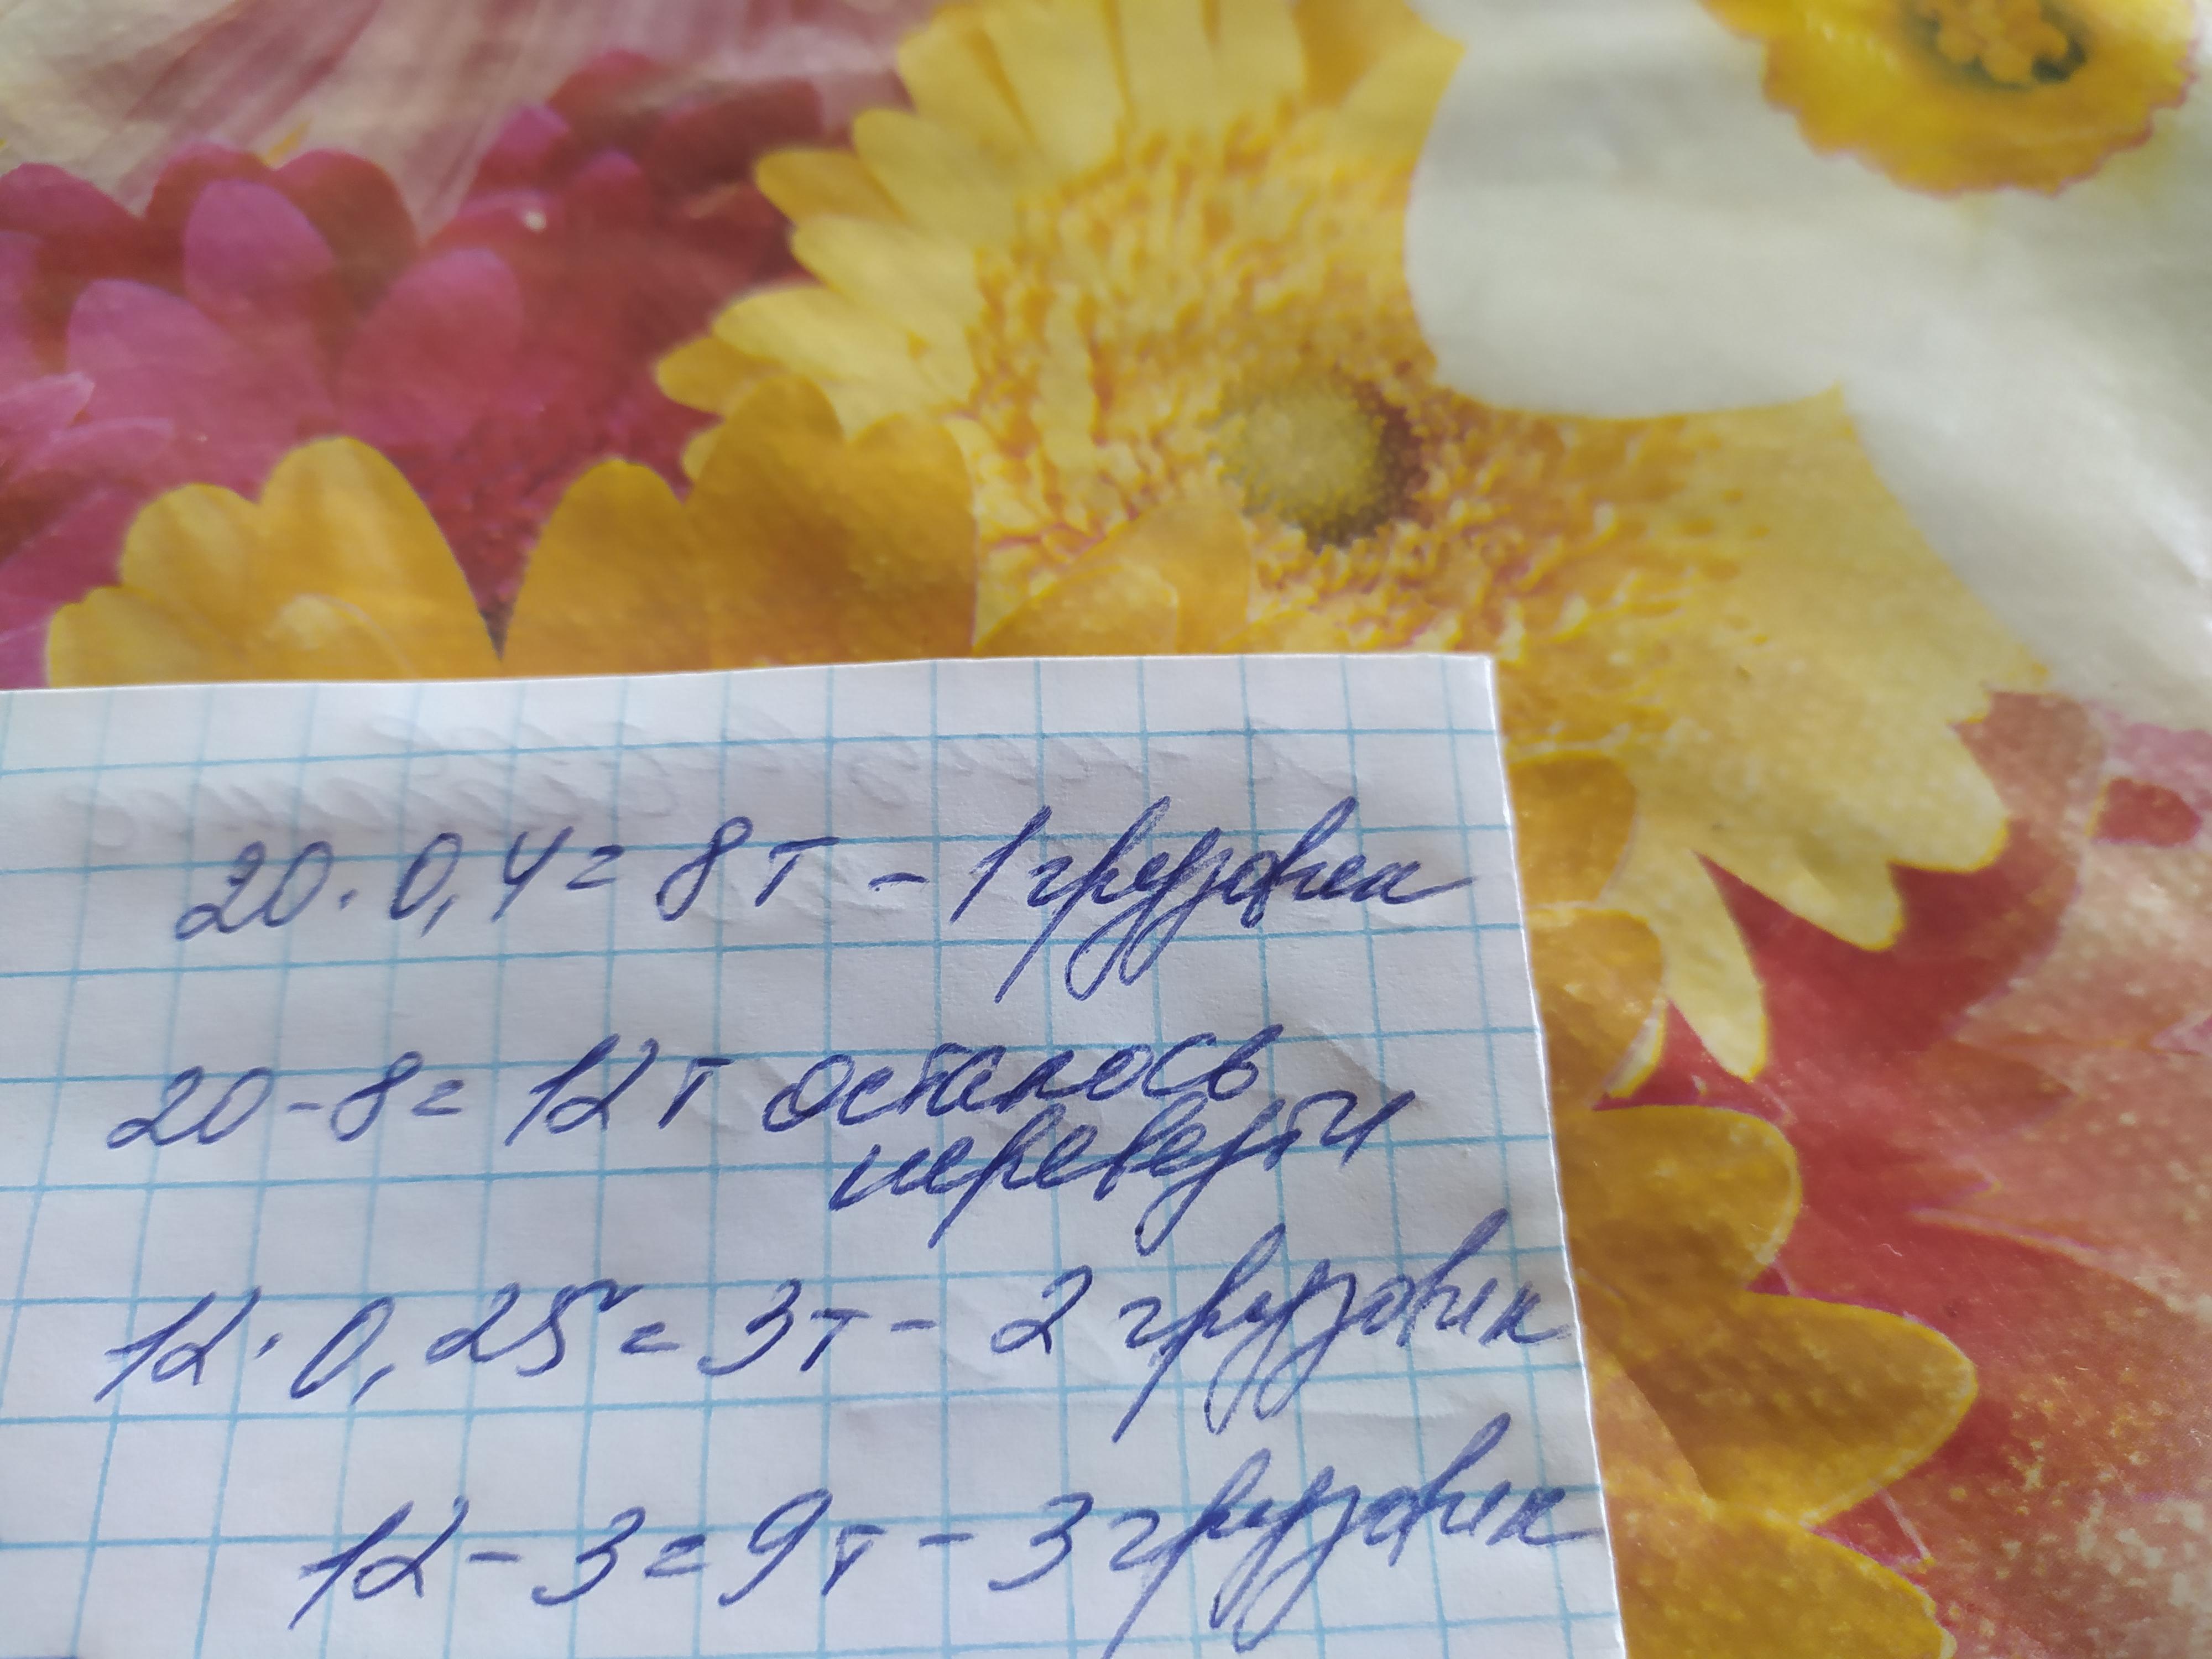 20·0,4=8т - 1 грузовик
20-8= 12т осталось
перевезти
12·0,25=3т- 2 грузовик
12-3=9т-3 грузовик